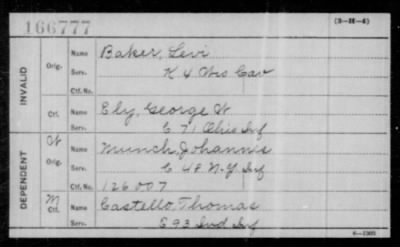 166777
(3-H-4)
INVALID
Orig.
Name Baker, Levi
Serv. K 4 Wis Cav
Ctf. No.
Ctf.
Name Ely, George W
Serv. C 71 Ohio Inf
DEPENDENT
W
Orig.
Name Munch, Johannis
Serv. C 48 N-Y Inf
Ctf. No. 126007
M
Ctf.
Name Castello, Thomas
Serv. E 93 Ind Inf